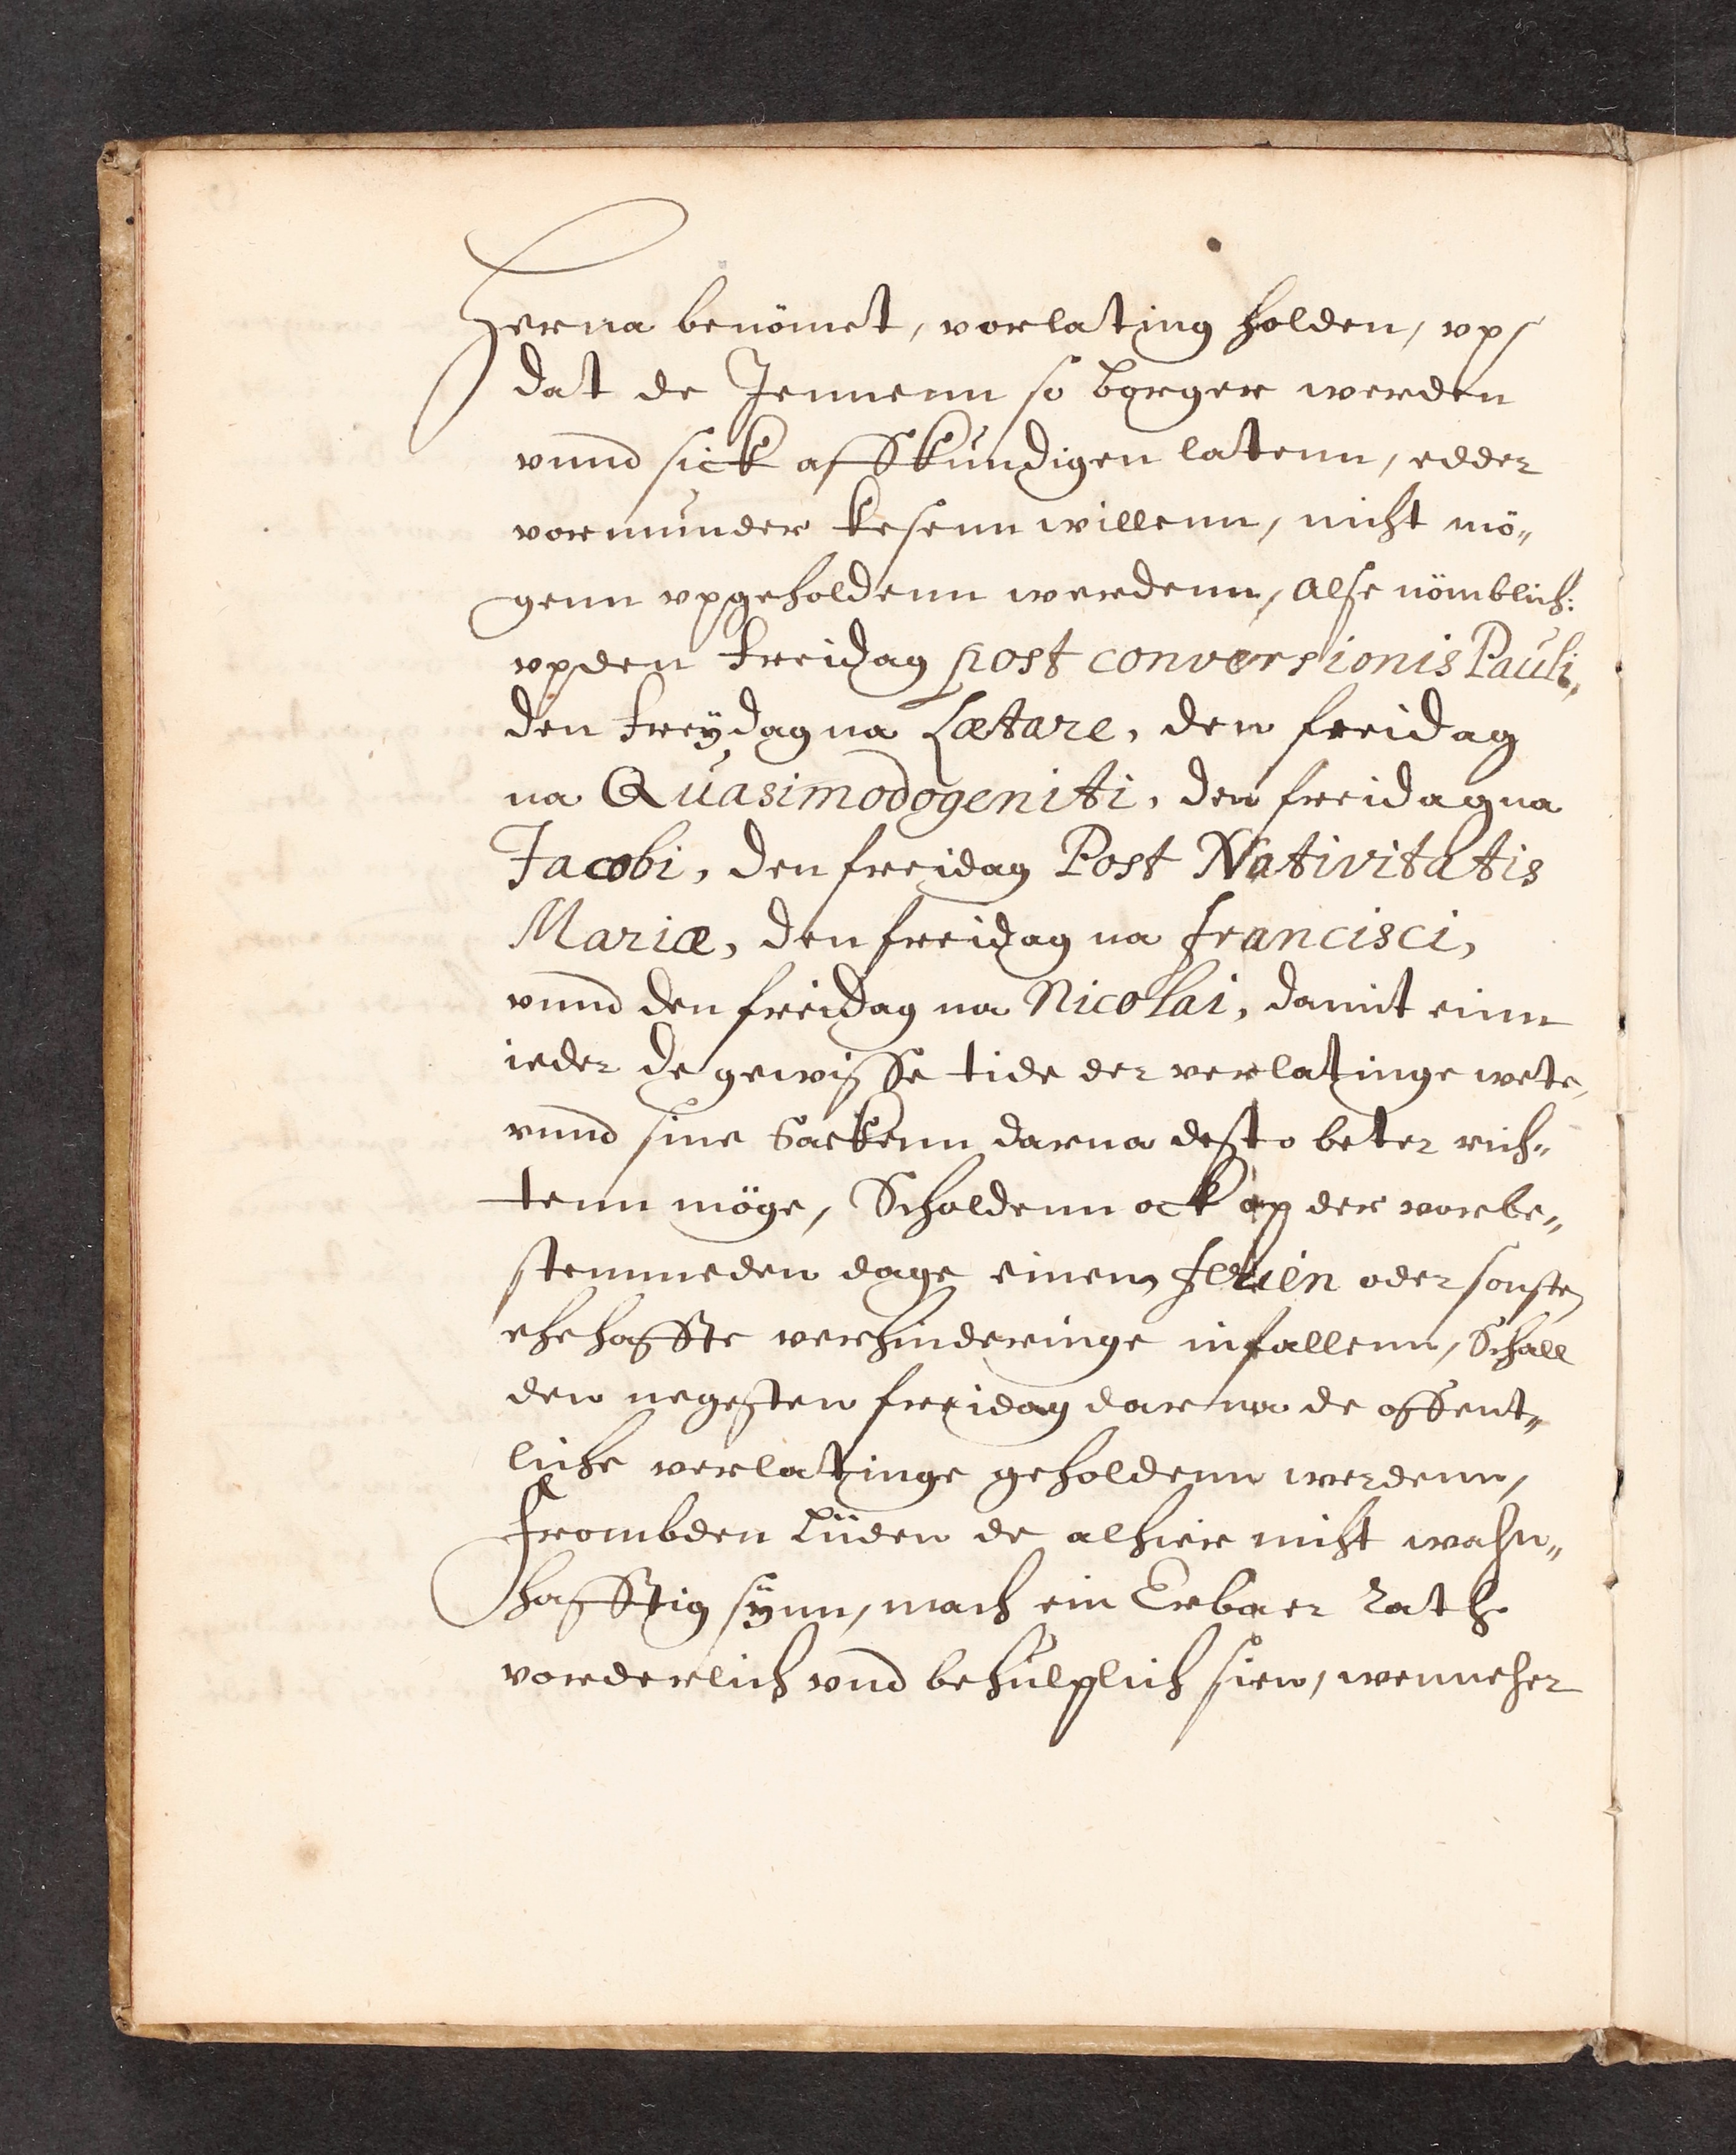 Herna benömet, vorlating holden, vp/
dat de Jennenn so borger werden
vnnd sick affkundigen latenn, edder
vormunder kesenn willenn, nicht mö„
genn vpgeholdenn werdenn, Alse nömblich:
vp den freidag post conversionis Pauli,
den freÿdag na Lætare, den freidag
na Quasimodogeniti, den freidag na
Jacobi, den freidag Post Nativitatis
Mariæ, den freidag na francisci,
vnnd den freidag na Nicolai, damit einn
ieder de gewisse tide der verlatinge wete,
vnnd sine Sackenn darna desto beter rich„
tenn möge, Scholdenn ock op der vorbe„
stemmeden dage einem ferien oder sonsten
ehehaffte verhinderinge infallenn, Schall
den negesten freidag darna de offent„
liche verlatinge geholdenn werdenn,
frombden Lüden de alhier nicht wahn„
hafftig sÿnn, mach ein Erbaer Rath
vorderlich vnd behülplich sien, wenneher